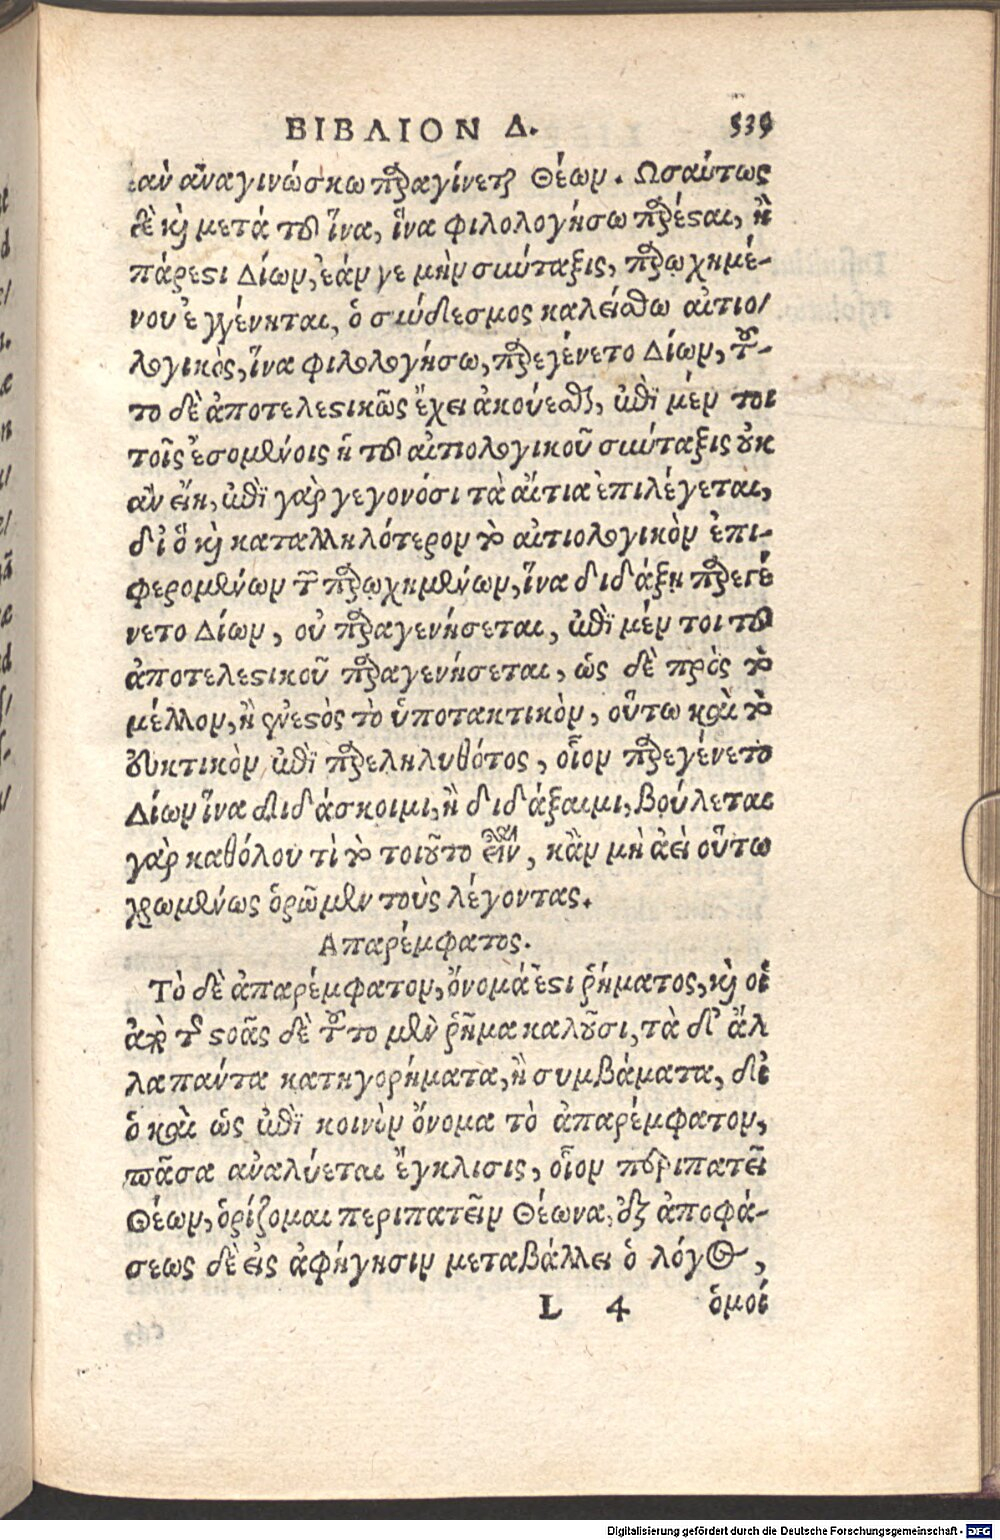 ΒΙΒΛΙΟΝ Δ. 539
ἐὰν ἀναγινώσκω παραγίνεται Θέων. Ωσαύτως
δὲ καὶ μετὰ τοῦ ἵνα, ἵνα φιλολογήσω παρέσαι, ἢ
πάρεστι Δίων, ἐὰν γε μὴν σύνταξις, παρωχημέ-
νου ἐγγένηται, ὁ σύνδεσμος καλείσθω αἰτιο/
λογικὸς, ἵνα φιλολογήσω, παρεγένετο Δίων, τοῦ-
το δὲ ἀποτελεστικῶς ἔχει ἀκούεσθαι, ἐπὶ μέν τοι
τοῖς ἐσομένοις ἡ τοῦ αἰτιολογικοῦ σύνταξις οὐκ
ἂν εἴη, ἐπὶ γὰρ γεγονόσι τὰ αἴτια ἐπιλέγεται,
δι ὃ καὶ καταλληλότερον τὸ αἰτιολογικὸν ἐπι-
φερομένων τῶν παρωχημένων, ἵνα διδάξῃ παρεγέ
νετο Δίων, οὐ παραγενήσεται, ἐπὶ μέν τοι τοῦ
ἀποτελεστικοῦ παραγενήσεται, ὡς δὲ πρὸς τὸ
μέλλον, ἢ ἐνεστὸς τὸ ὑποτακτικὸν, οὕτω καὶ τὸ
εὐκτικὸν ἐπὶ παρεληλυθότος, οἷον παρεγένετο
Δίων ἵνα διδάσκοιμι, ἢ διδάξαιμι, βούλεται
γὰρ καθόλου τὶ τὸ τοιοῦτο εἶναι, κἂν μὴ ἀεὶ οὕτω
χρωμένως ὁρῶμεν τοὺς λέγοντας.
Απαρέμφατος.
Τὸ δὲ ἀπαρέμφατον, ὄνομά ἐστι ῥήματος, καὶ οἱ
ἀπὸ τῆς στοᾶς δὲ τοῦτο μὲν ῥῆμα καλοῦσι, τὰ δ' ἄλ
λα πάντα κατηγορήματα, ἢ συμβάματα, δι
ὃ καὶ ὡς ἐπὶ κοινὸν ὄνομα τὸ ἀπαρέμφατον,
πᾶσα ἀναλύεται ἔγκλισις, οἷον περιπατεῖ
Θέων, ὁρίζομαι περιπατεῖν Θέωνα, ἐξ ἀποφά-
σεως δὲ εἰς ἀφήγησιν μεταβάλλει ὁ λόγος,
L 4 ὁμοί
Digitalisierung gefördert durch die Deutsche Forschungsgemeinschaft - DFG